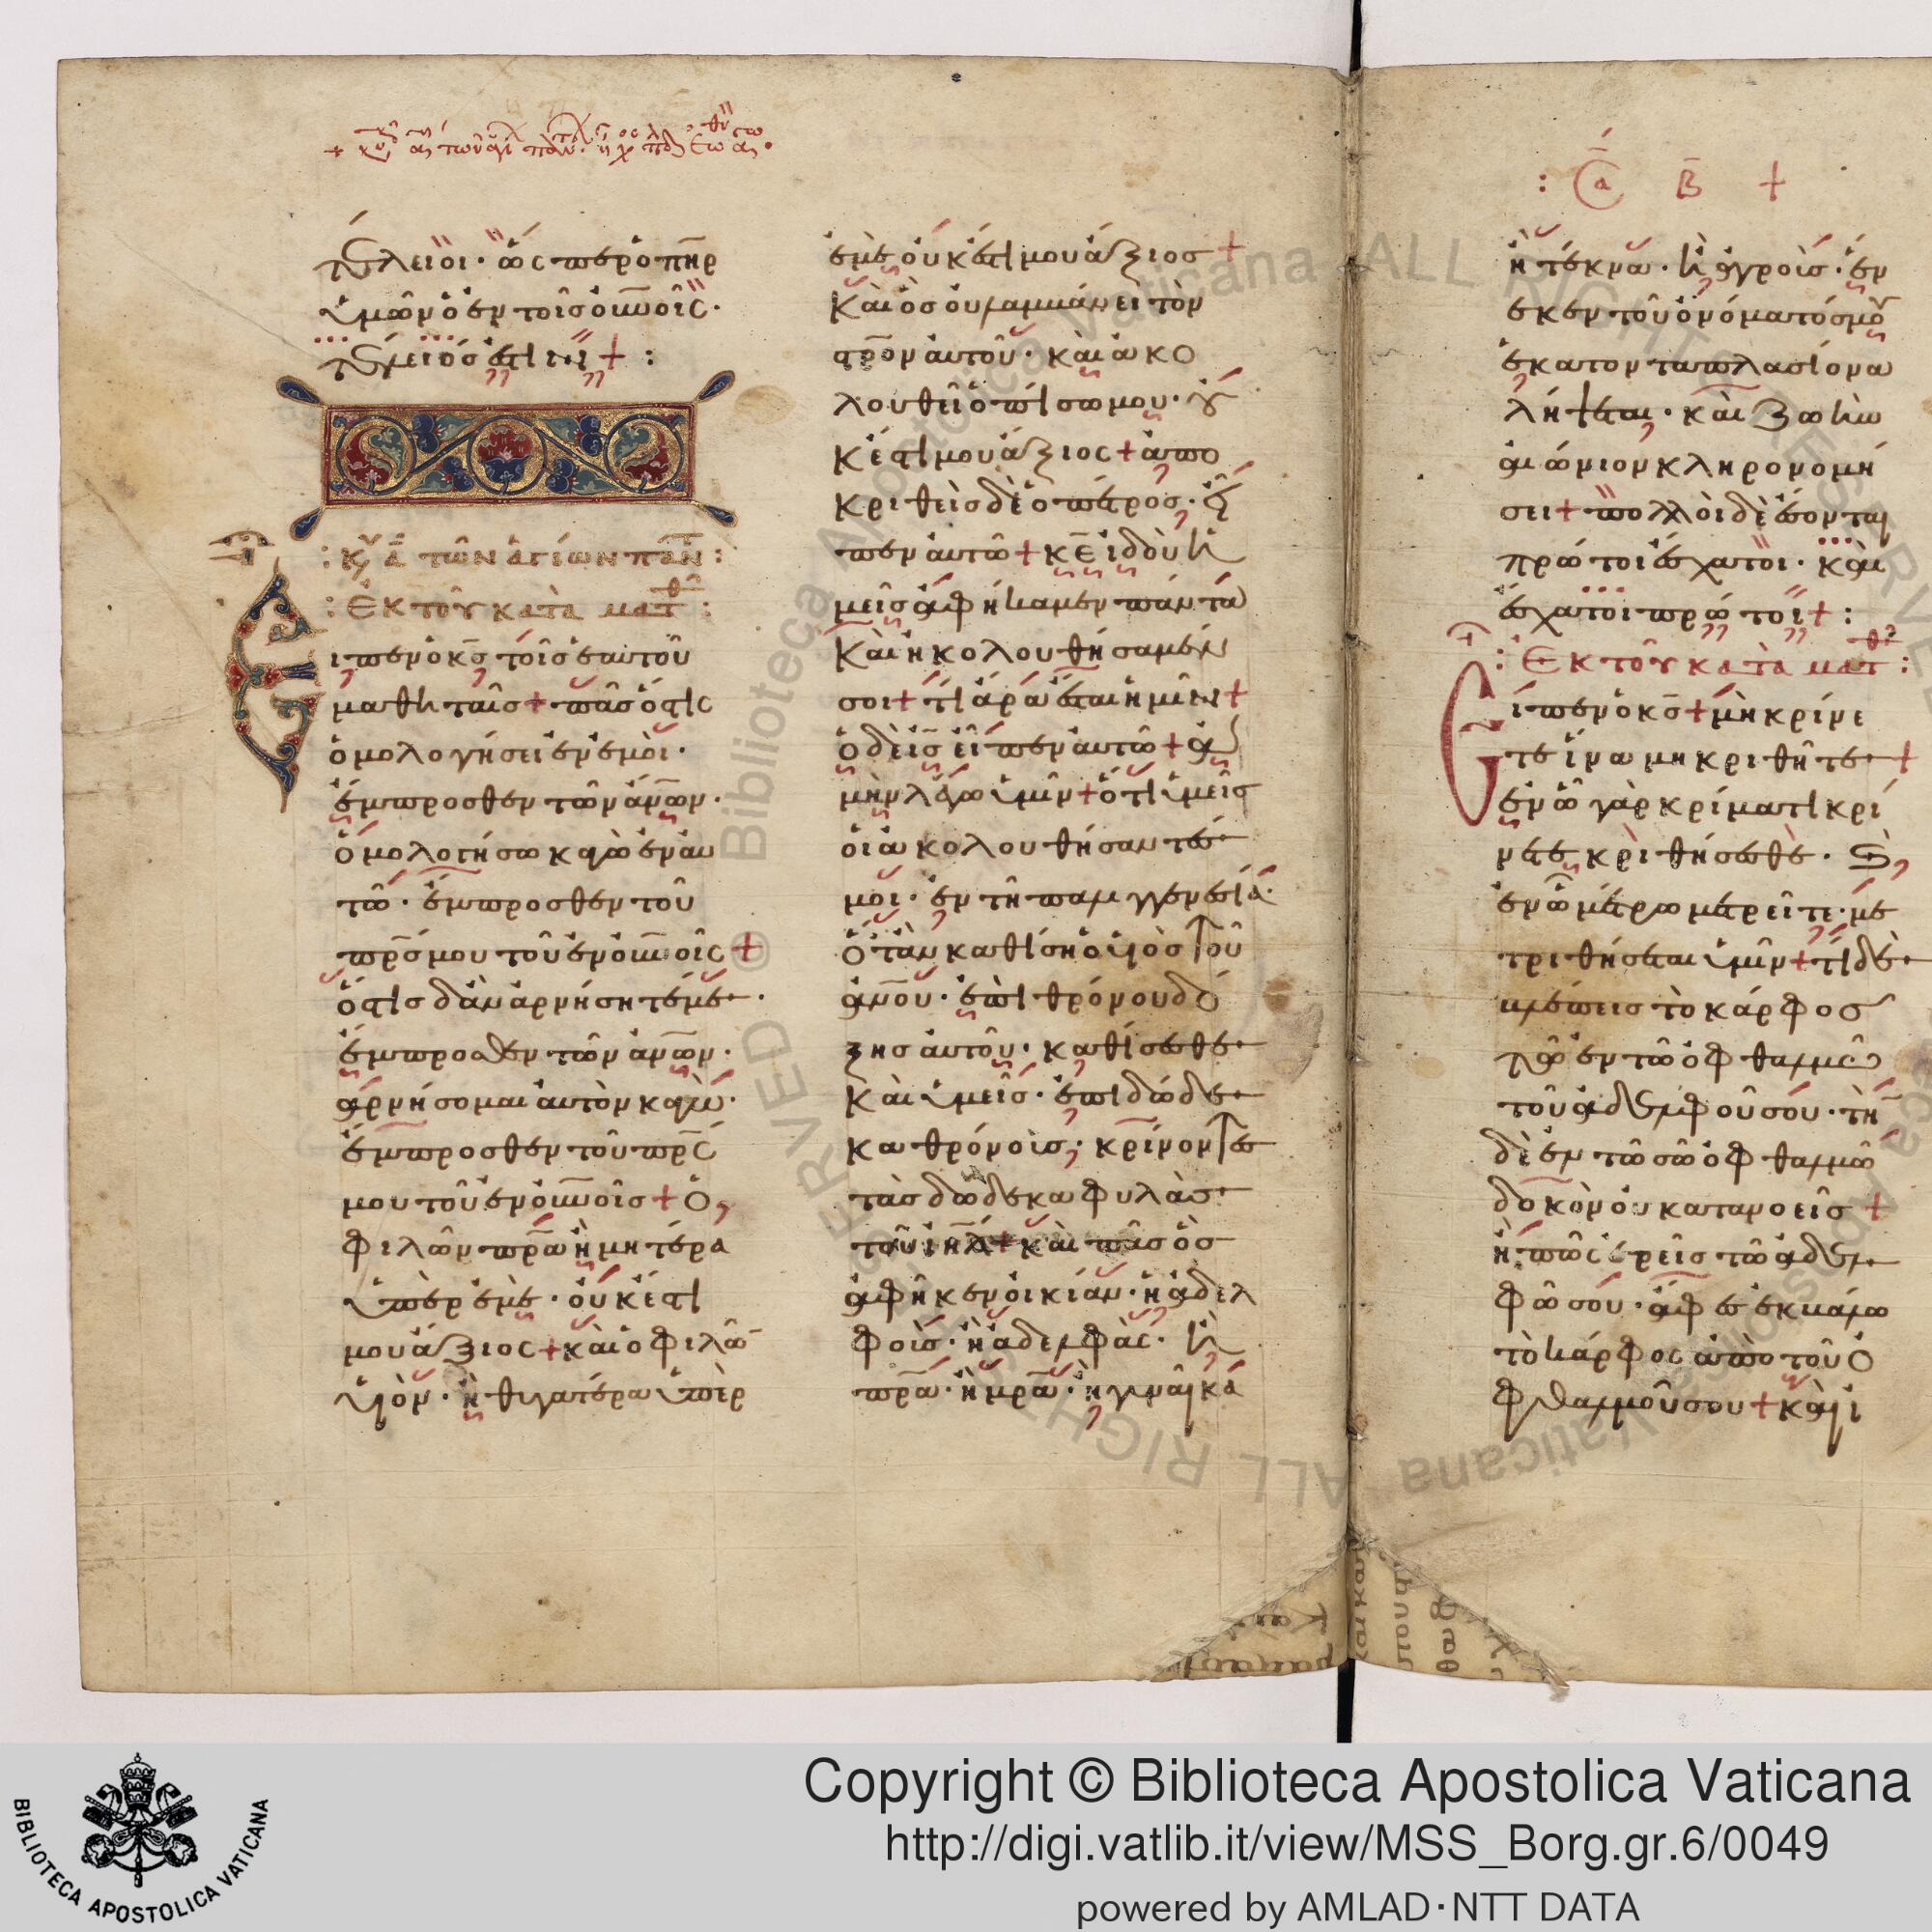 τέλειοι· ὥσπερ ὁ π̅η̅ρ
ὑμῶν ὁ ἐν τοῖς ο̅υ̅ν̅οῖς·
τέλειός ἐστιν + :
: Κυ Α ΤῶΝ ἉΓΙΩΝ ΠΑΝ :
: ἘΚ ΤΟῦ ΚΑΤᾺ ΜΑΤΘ :
Εἶπεν ὁ κ̅ς̅ τοῖς ἑαυτοῦ
μαθηταῖς + πᾶς ὅστις
ὁμολογήσει ἐν ἐμοὶ·
ἔμπροσθεν τῶν ἀ̅ν̅ω̅ν·
ὁμολογήσω κἀγὼ ἐν αὐ
τῶ· ἔμπροσθεν τοῦ
π̅ρ̅ς μου τοῦ ἐν ο̅υ̅ν̅οῖς +
ὅστις δ' ἂν ἀρνήσητέ με·
ἔμπροσθεν τῶν ἀ̅ν̅ω̅ν·
ἀρνήσομαι αὐτὸν κἀγὼ·
ἔμπροσθεν τοῦ π̅ρ̅ς
μου τοῦ ἐν ο̅υ̅ν̅οῖς + Ὁ
φιλῶν π̅ρ̅α ἢ μητέρα
ὑπὲρ ἐμὲ· οὐκ ἔστι
μου ἄξιος + καὶ ὁ φιλῶ
υἱὸν· ἢ θυγατέρα ὑπὲρ
ἐμὲ οὐκ ἔστι μου ἄξιος +
Καὶ ὃς οὐ λαμβάνει τὸν
σ̅τ̅ρ̅ον αὐτοῦ· καὶ ἀκο
λουθεῖ ὀπίσω μου· οὐ
κ ἔστι μου ἄξιος + ἀπο
κριθεὶς δὲ ὁ πέτρος·
εἶπεν αὐτῶ + κ̅ε̅ ἰδοὺ ἡ
μεῖς ἀφήκαμεν πάντα
Καὶ ἠκολουθήσαμέν
σοι + τί ἄρα ἔσται ἡμῖν +
ὁ δὲ ι̅ς̅ εἶπεν αὐτῶ + ἀ
μὴν λέγω ὑμῖν + ὅτι ὑμεῖς
οἱ ἀκολουθήσαντές
μοι· ἐν τῆ παλιγγενεσία·
Ὅταν καθίση ὁ υἱὸς τοῦ
ἀ̅ν̅ου· ἐπὶ θρόνου δό
ξης αὐτοῦ· καθίσεσθε
Καὶ ὑμεῖς· ἐπὶ δώδε
κα θρόνοις· κρίνοντες
τὰς δώδεκα φυλὰς
τοῦ ι̅η̅λ̅ + καὶ πᾶς ὃς
ἀφῆκεν οἰκίαν· ἢ ἀδελ
φοὺς· ἢ ἀδελφὰς· ἢ
π̅ρ̅α· ἢ μ̅ρ̅α· ἢ γυναῖκα
: C̅α Β̅ +
ἢ τέκνα· ἢ ἀγροὺς· ἕν
εκεν τοῦ ὀνόματός μου
ἑκατονταπλασίονα
λήψεται· καὶ ζωὴν
αἰώνιον κληρονομή
σει + πολλοὶ δὲ ἔσονται
πρῶτοι ἔσχατοι· καὶ
ἔσχατοι πρῶτοι + :
: ἘΚ ΤΟῦ ΚΑΤᾺ ΜΑΤΘ :
Εἶπεν ὁ κ̅ς̅ + μὴ κρίνε
τε ἵνα μὴ κριθῆτε +
ἐν ᾧ γὰρ κρίματι κρί
νετε κριθήσεσθε· καὶ
ἐν ᾧ μέτρω μετρεῖτε· με
τρηθήσεται ὑμῖν + τί δὲ
βλέπεις τὸ κάρφος
τὸ ἐν τῶ ὀφθαλμῶ
τοῦ ἀδελφοῦ σου· τὴν
δὲ ἐν τῶ σῶ ὀφθαλμῶ
δοκὸν οὐ κατανοεῖς +
ἢ πῶς ἐρεῖς τῶ ἀδελ
φῶ σου· ἄφες ἐκβάλω
τὸ κάρφος ἀπὸ τοῦ ὀ
φθαλμοῦ σου + καὶ ἰ
BIBLIOTECA APOSTOLICA VATICANA
Copyright © Biblioteca Apostolica Vaticana
http://digi.vatlib.it/view/MSS_Borg.gr.6/0049
powered by AMLAD·NTT DATA